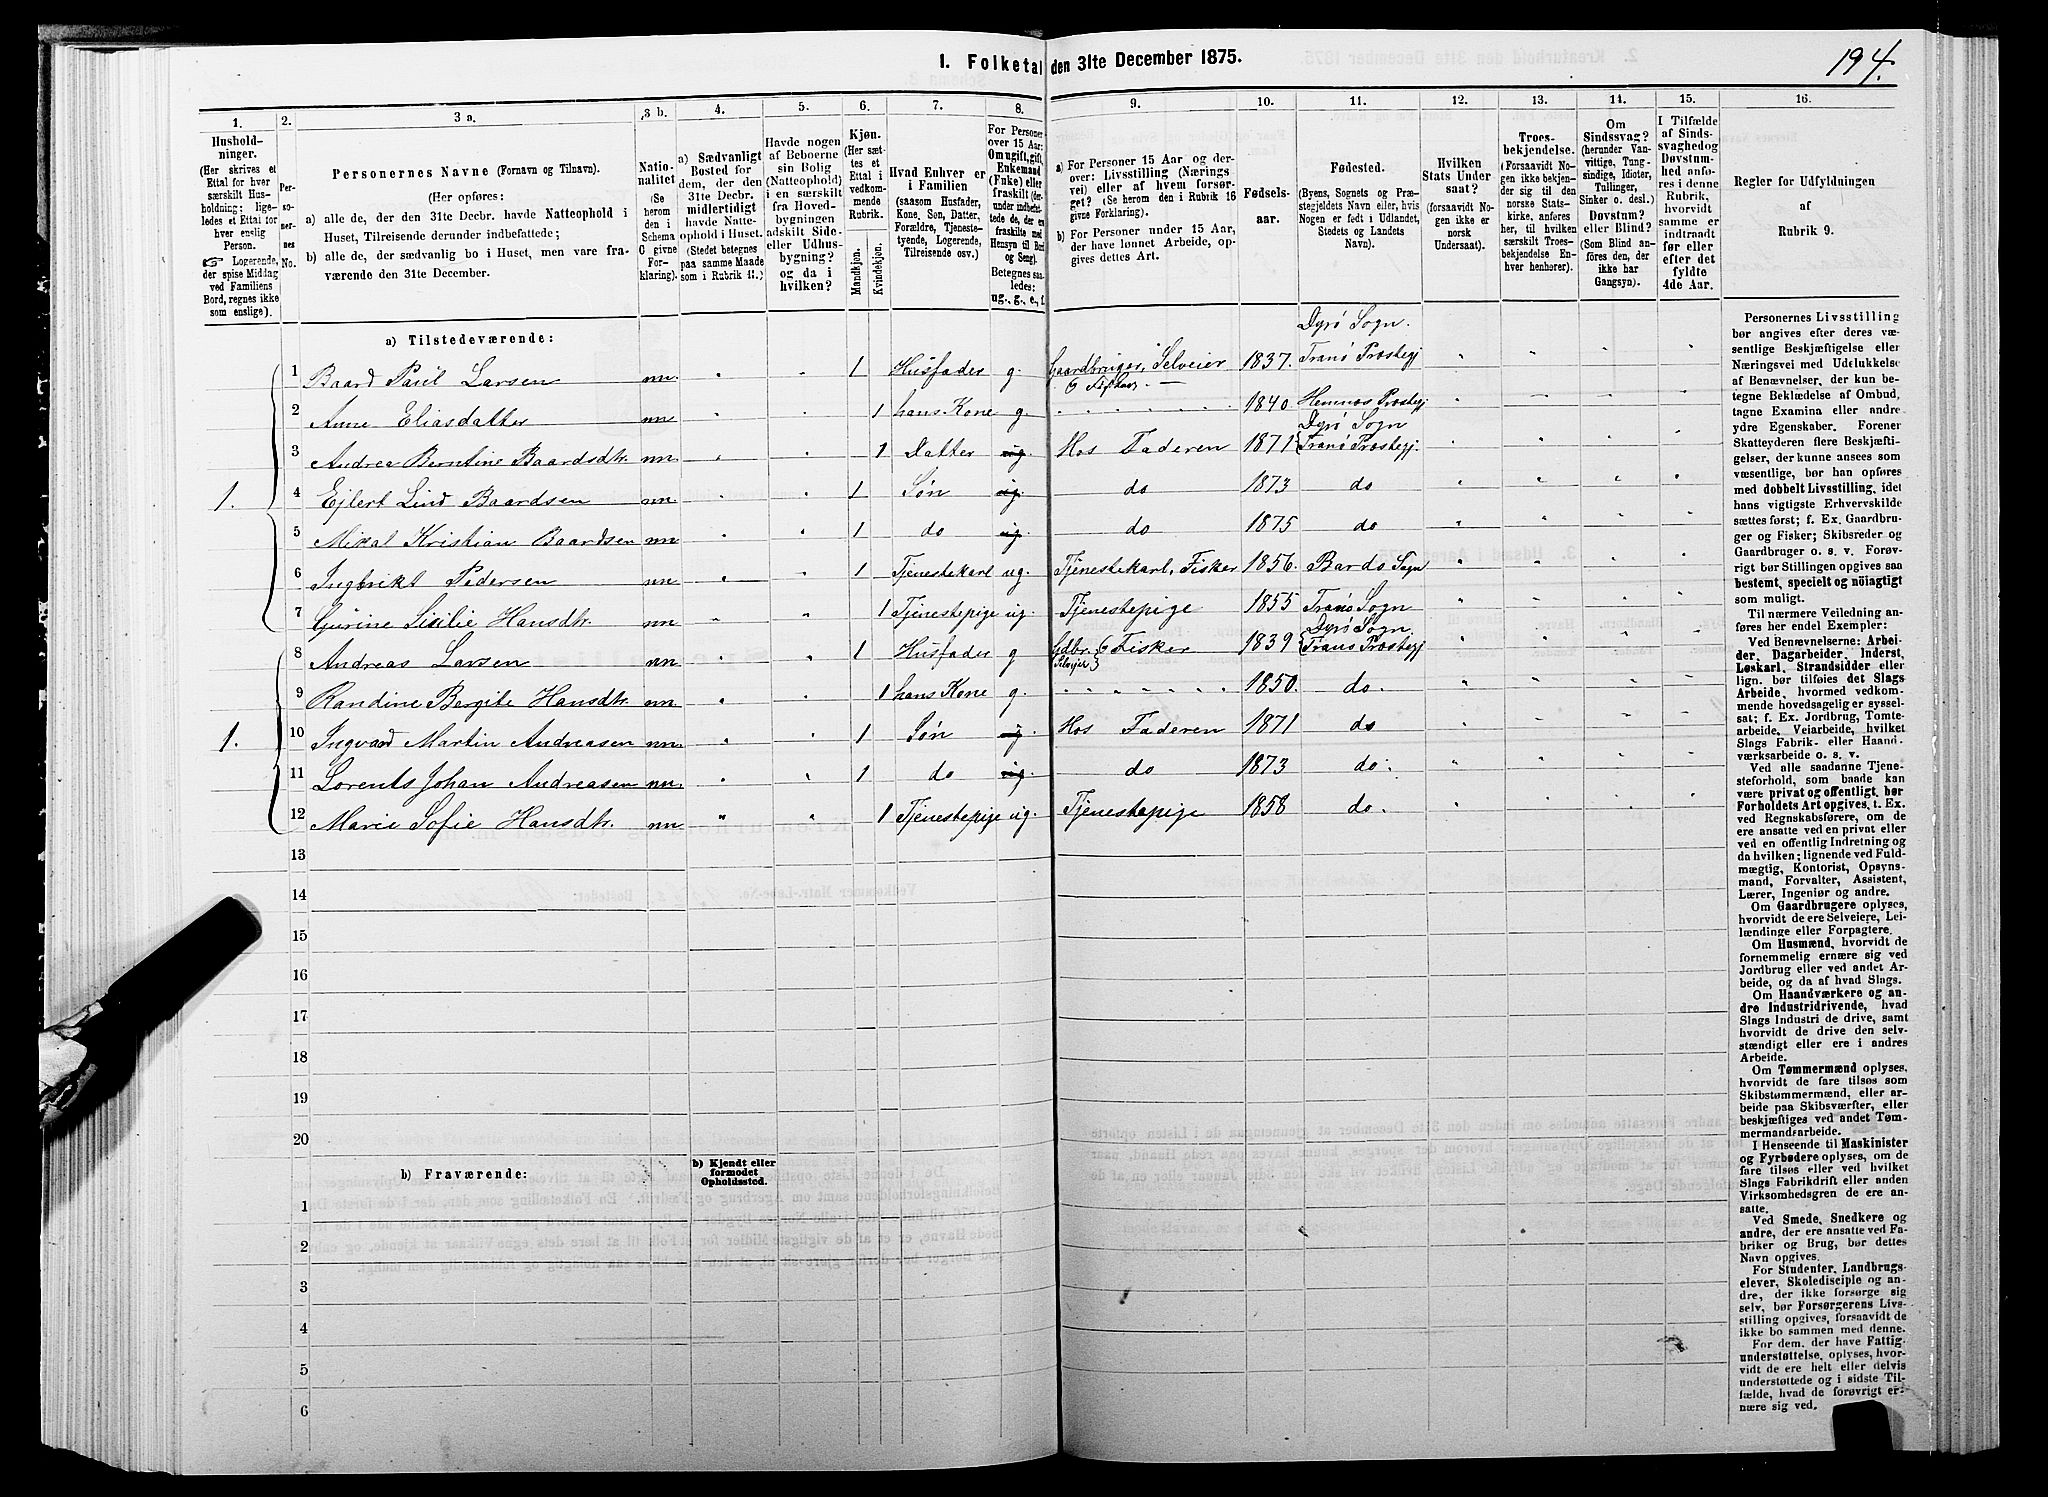 1. Folketal den 31te December 1875.
194.
1.
Hushold-
ninger.
(Her skrives et
Ettal for hver
særskilt Hus-
holdning; lige-
ledes et Ettal for
hver enslig
Person.
☞ Logerende,
der spise Middag
ved Familiens
Bord, regnes ikke
som enslige).
2.
Per-
so-
ner-
nes
No.
3 a.
Personernes Navne (Fornavn og Tilnavn).
(Her opføres:
a) alle de, der den 31te Decbr. havde Natteophold i
Huset, Tilreisende derunder indbefattede;
b) alle de, der sædvanlig bo i Huset, men vare fra-
værende den 31te December.
3 b.
Natio-
nalitet
(Se
herom
den i
Schema
C givne
For-
klaring).
4.
a) Sædvanligt
Bosted for
dem, der den
31te Decbr.
midlertidigt
havde Natte-
ophold i Huset.
(Stedet betegnes
paa samme Maade
som i Rubrik 11.)
5.
Havde nogen
af Beboerne
sin Bolig
(Natteophold)
i en særskilt
fra Hoved-
bygningen
adskilt Side-
eller Udhus-
bygning?
og da i
hvilken?
6.
Kjøn.
(Her sæt-
tes et
Ettal i
vedkom-
mende
Rubrik.
Mandkjøn.
Kvindekjøn.
7.
Hvad Enhver er
i Familien
(saasom Husfader,
Kone, Søn, Datter,
Forældre, Tjeneste-
tyende, Logerende,
Tilreisende osv.)
8.
For Personer
over 15 Aar:
Om ugift, gift,
Enkemand
(Enke) eller
fraskilt (der-
under indbefat-
tede de, der ere
fraskilte med
Hensyn til Bord
og Seng).
Betegnes saa-
ledes:
ug., g., e., f.
9.
a) For Personer 15 Aar og der-
over: Livsstilling (Nærings-
vei) eller af hvem forsør-
get? (Se herom den i Rubrik 16
givne Forklaring).
b) For Personer under 15 Aar,
der have lønnet Arbeide, op-
gives dettes Art.
10.
Fødsels-
aar.
11.
Fødested.
(Byens, Sognets og Præ-
stegjeldets Navn eller, hvis
Nogen er født i Udlandet,
Stedets og Landets
Navn).
12.
Hvilken
Stats Under-
saat?
(forsaavidt No-
gen ikke er
norsk
Undersaat).
13.
Troes-
bekjendelse.
(Forsaavidt No-
gen ikke bekjen-
der sig til den
norske Stats-
kirke, anføres
her, til hvilken
særskilt Troes-
bekjendelse En-
hver henhører).
14.
Om
Sindssvag?
(herunder Van-
vittige, Tung-
sindige, Idioter,
Tullinger,
Sinker o. desl.)
Døvstum?
eller Blind?
(Som Blind an-
føres den, der
ikke har
Gangsyn).
15.
I Tilfælde
af Sinds-
svaghed og
Døvstum-
hed anfø-
res i denne
Rubrik,
hvorvidt
samme er
indtraadt
før eller
efter det
fyldte
4de Aar.
16.
Regler for Udfyldningen
af
Rubrik 9.
a) Tilstedeværende:
1 Baard Paul Larsen nn. 1 Husfader g. Gaardbruger, Selveier & Fisker 1837. Dyrö Sogn. Tranö Præstegj
2 Anne Eliasdatter nn 1 hans Kone g. 1840. Hemnæs Præstegj
3 Andrea Berntine Baardsdtr. nn. 1 Datter ug. Hos Faderen 1871 Dyrö Sogn Tranö Præstegj.
1. 4 Ejlert Lind Baardsen nn 1 Søn ug. do 1873 do
5 Mikal Kristian Baardsen nn 1 do ug. do 1875 do
6 Ingbrikt Pedersen nn 1 Tjenestekarl ug. Tjenestekarl, Fisker 1856. Bardo Sogn
7 Gjurine Sisilie Hansdtr. nn. 1 Tjenestepige ug. Tjenestepige 1855 Tranö Sogn
8 Andreas Larsen nn 1 Husfader g Gdbr. & Fisker Selvejer 1839 Dyrö Sogn Tranö Præstegj
9 Randine Bergite Hansdtr. nn. 1 hans Kone g. 1850. do.
1. 10 Ingvard Martin Andreasen nn. 1 Søn ug. Hos Faderen 1871 do
11 Lorents Johan Andreasen nn. 1 do ug. do 1873 do.
12 Marie Sofie Hansdtr. nn 1 Tjenestepige ug. Tjenestepige 1858 do.
13
14
15
16
17
18
19
20
b) Fraværende:
b) Kjendt eller
formodet
Opholdssted.
1
2
3
4
5
6
Personernes Livsstilling
bør angives efter deres væ-
sentlige Beskjæftigelse eller
Næringsvei med Udelukkelse
af Benævnelser, der kun be-
tegne Beklædelse af Ombud,
tagne Examina eller andre
ydre Egenskaber. Forener
Skatteyderen flere Beskjæfti-
gelser, der kunne ansees som
væsentlige, bør han opføres
med dobbelt Livsstilling, idet
hans vigtigste Erhvervskilde
sættes først; f. Ex. Gaardbru-
ger og Fisker; Skibsreder og
Gaardbruger o. s. v. Forøv-
rigt bør Stillingen opgives saa
bestemt, specielt og nöiagtigt
som muligt.
Til nærmere Veiledning an-
føres her endel Exempler:
Ved Benævnelserne: Arbei-
der, Dagarbeider, Inderst,
Løskarl, Strandsidder eller
lign. bør tilføies det Slags
Arbeide, hvormed vedkom-
mende hovedsagelig er syssel-
sat; f. Ex. Jordbrug, Tomte-
arbeide, Veiarbeide, hvilket
Slags Fabrik- eller Haand-
værksarbeide o. s. v.
Ved alle saadanne Tjene-
steforhold, som baade kan
være privat og offentligt, bør
Forholdets Art opgives, t. Ex.
ved Regnskabsførere, om de
ere ansatte ved en privat eller
ved en offentlig Indretning og
da hvilken; lignende ved Fuld-
mægtig, Kontorist, Opsyns-
mand, Forvalter, Assistent,
Lærer, Ingeniør og andre.
Om Gaardbrugere oplyses,
hvorvidt de ere Selveiere, Lei-
lændinge eller Forpagtere.
Om Husmænd, hvorvidt de
fornemmelig ernære sig ved
Jordbrug eller ved andet Ar-
beide, og da af hvad Slags.
Om Haandværkere og an-
dre Industridrivende, hvad
Slags Industri de drive, samt
hvorvidt de drive den selv-
stændigt eller ere i andres
Arbeide.
Om Tømmermænd oplyses,
hvorvidt de fare tilsøs som
Skibstømmermænd, eller ar-
beide paa Skibsværfter, eller
beskjæftiges ved andet Tøm-
mermandsarbeide.
I Henseende til Maskinister
og Fyrbødere oplyses, om de
fare tilsøs eller ved hvilket
Slags Fabrikdrift eller anden
Virksomhedsgren de ere an-
satte.
Ved Smede, Snedkere og
andre, der ere ansatte ved Fa-
briker og Brug, bør dettes
Navn opgives.
For Studenter, Landbrugs-
elever, Skoledisciple og an-
dre, der ikke forsørge sig
selv, bør Forsørgerens Livs-
stilling opgives, forsaavidt de
ikke bo sammen med denne.
For dem, der have Fattig-
understøttelse, oplyses, hvor-
vidt de ere helt eller delvis
understøttede og i sidste Til-
fælde, hvad de forøvrigt er-
nære sig ved.